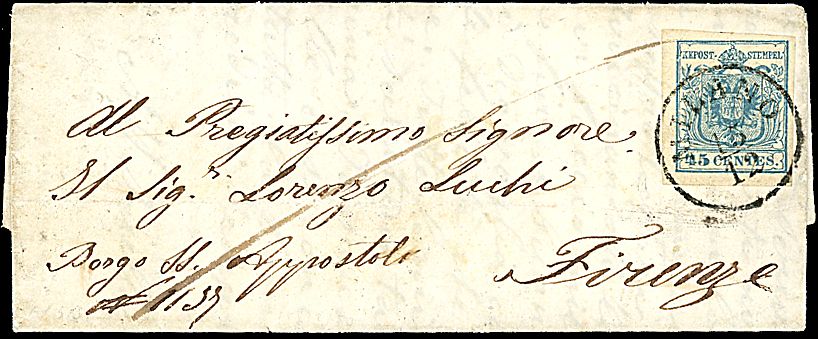 KKPOST-STEMPEL
45 CENTES.
MILANO
15
12
Al Pregiatissimo Signore
Il Sig.r Lorenzo Luchi
Borgo SS. Appostoli
Firenze